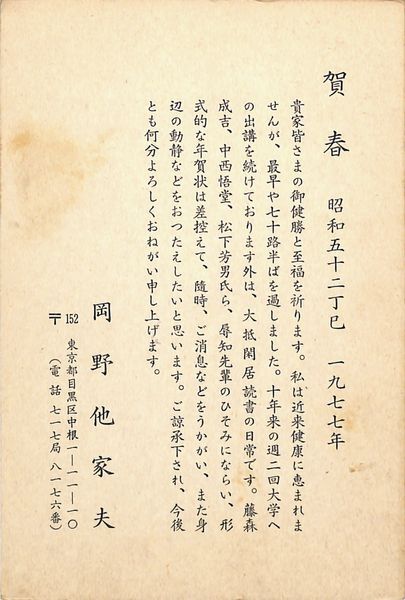 賀春　昭和五十二丁巳　一九七七年
貴家皆さまの御健勝と至福を祈ります。私は近来健康に恵まれま
せんが、最早や七十路半ばを過しました。十年来の週二回大学へ
の出講を続けております外は、大抵閑居読書の日常です。藤森
成吉、中西悟堂、松下芳男氏ら、辱知先輩のひそみにならい、形
式的な年賀状は差控えて、随時、ご消息などをうかがい、また身
辺の動静などをおつたえしたいと思います。ご諒承下され、今後
とも何分よろしくおねがい申し上げます。
岡野他家夫
〒152 東京都目黒区中根一ー一一ー一〇
（電話 七一七局 八一七六番）